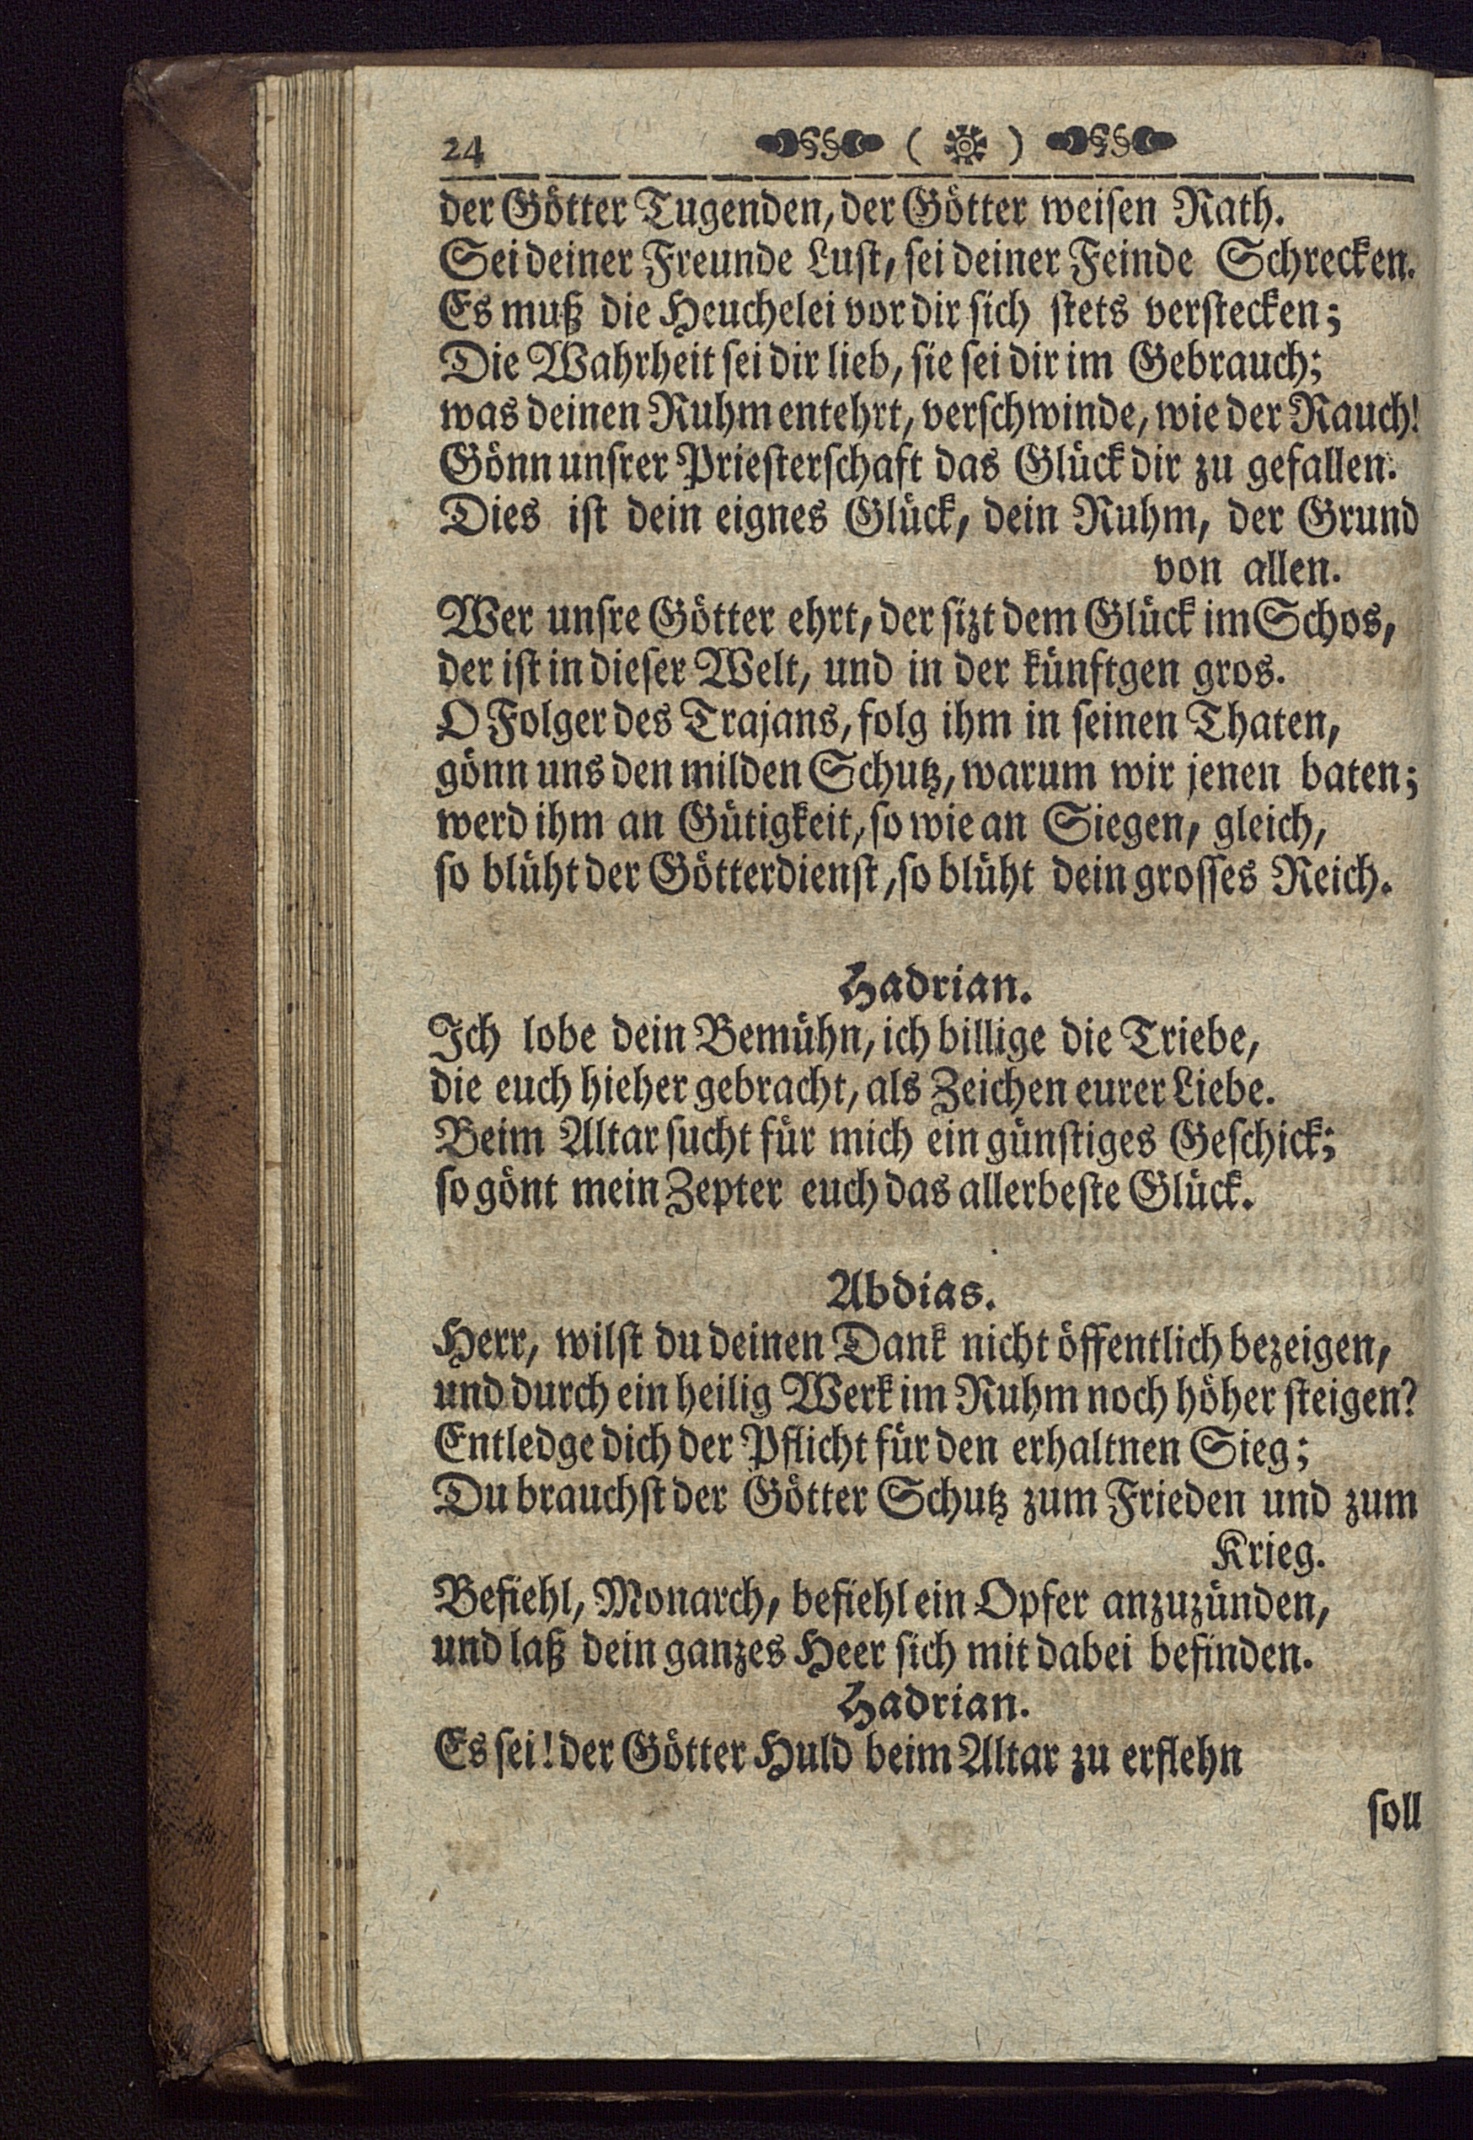 24 ( )
der Götter Tugenden, der Götter weisen Rath.
Sei deiner Freunde Lust, sei deiner Feinde Schrecken.
Es muß die Heuchelei vor dir sich stets verstecken;
Die Wahrheit sei dir lieb, sie sei dir im Gebrauch;
was deinen Ruhm entehrt, verschwinde, wie der Rauch!
Gönn unsrer Priesterschaft das Glück dir zu gefallen.
Dies ist dein eignes Glück, dein Ruhm, der Grund
von allen.
Wer unsre Götter ehrt, der sizt dem Glück im Schos,
der ist in dieser Welt, und in der künftgen gros.
O Folger des Trajans, folg ihm in seinen Thaten,
gönn uns den milden Schutz, warum wir jenen baten;
werd ihm an Gütigkeit, so wie an Siegen, gleich,
so blüht der Götterdienst, so blüht dein grosses Reich.
Hadrian.
Ich lobe dein Bemühn, ich billige die Triebe,
die euch hieher gebracht, als Zeichen eurer Liebe.
Beim Altar sucht für mich ein günstiges Geschick;
so gönt mein Zepter euch das allerbeste Glück.
Abdias.
Herr, wilst du deinen Dank nicht öffentlich bezeigen,
und durch ein heilig Werk im Ruhm noch höher steigen?
Entledge dich der Pflicht für den erhaltnen Sieg;
Du brauchst der Götter Schutz zum Frieden und zum
Krieg.
Befiehl, Monarch, befiehl ein Opfer anzuzünden,
und laß dein ganzes Heer sich mit dabei befinden.
Hadrian.
Es sei! der Götter Huld beim Altar zu erflehn
soll